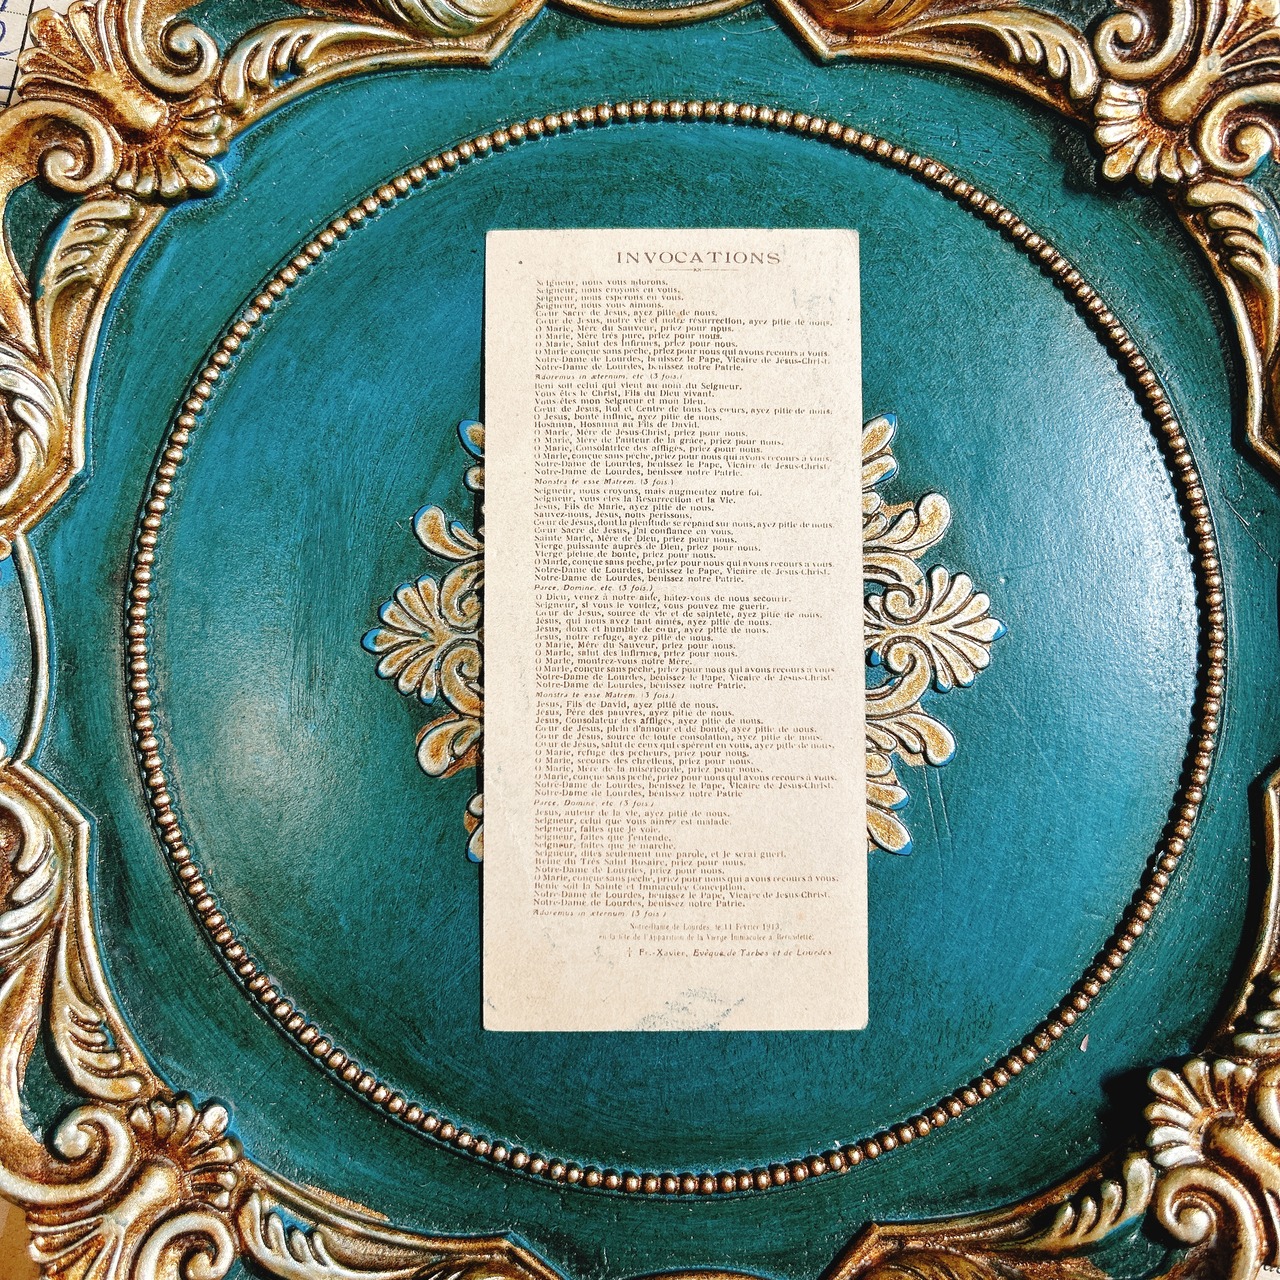 INVOCATIONS
Seigneur, nous vous adorons.
Seigneur, nous croyons en vous.
Seigneur, nous espérons en vous.
Seigneur, nous vous aimons.
Cœur Sacré de Jésus, ayez pitié de nous.
Cœur de Jésus, notre vie et notre résurrection, ayez pitié de nous.
O Marie, Mère du Sauveur, priez pour nous.
O Marie, Mère très pure, priez pour nous.
O Marie, Salut des Infirmes, priez pour nous.
O Marie conçue sans péché, priez pour nous qui avons recours à vous.
Notre-Dame de Lourdes, bénissez le Pape, Vicaire de Jésus-Christ.
Notre-Dame de Lourdes, bénissez notre Patrie.
Adoremus in æternum, etc. (3 fois.)
Béni soit celui qui vient au nom du Seigneur.
Vous êtes le Christ, Fils du Dieu vivant.
Vous êtes mon Seigneur et mon Dieu.
Cœur de Jésus, Roi et Centre de tous les cœurs, ayez pitié de nous.
O Jésus, bonté infinie, ayez pitié de nous.
Hosanna, Hosanna au Fils de David.
O Marie, Mère de Jésus-Christ, priez pour nous.
O Marie, Mère de l'auteur de la grâce, priez pour nous.
O Marie, Consolatrice des affligés, priez pour nous.
O Marie, conçue sans péché, priez pour nous qui avons recours à vous.
Notre-Dame de Lourdes, bénissez le Pape, Vicaire de Jésus-Christ.
Notre-Dame de Lourdes, bénissez notre Patrie.
Monstra te esse Matrem. (3 fois.)
Seigneur, nous croyons, mais augmentez notre foi.
Seigneur, vous êtes la Résurrection et la Vie.
Jésus, Fils de Marie, ayez pitié de nous.
Sauvez-nous, Jésus, nous périssons.
Cœur de Jésus, dont la plénitude se répand sur nous, ayez pitié de nous.
Cœur Sacré de Jésus, j'ai confiance en vous.
Sainte Marie, Mère de Dieu, priez pour nous.
Vierge puissante auprès de Dieu, priez pour nous.
Vierge pleine de bonté, priez pour nous.
O Marie, conçue sans péché, priez pour nous qui avons recours à vous.
Notre-Dame de Lourdes, bénissez le Pape, Vicaire de Jésus-Christ.
Notre-Dame de Lourdes, bénissez notre Patrie.
Parce, Domine, etc. (3 fois.)
O Dieu, venez à notre aide, hâtez-vous de nous secourir.
Seigneur, si vous le voulez, vous pouvez me guérir.
Cœur de Jésus, source de vie et de sainteté, ayez pitié de nous.
Jésus, qui nous avez tant aimés, ayez pitié de nous.
Jésus, doux et humble de cœur, ayez pitié de nous.
Jésus, notre refuge, ayez pitié de nous.
O Marie, Mère du Sauveur, priez pour nous.
O Marie, salut des Infirmes, priez pour nous.
O Marie, montrez-vous notre Mère.
O Marie, conçue sans péché, priez pour nous qui avons recours à vous.
Notre-Dame de Lourdes, bénissez le Pape, Vicaire de Jésus-Christ.
Notre-Dame de Lourdes, bénissez notre Patrie.
Monstra te esse Matrem. (3 fois.)
Jésus, Fils de David, ayez pitié de nous.
Jésus, Père des pauvres, ayez pitié de nous.
Jésus, Consolateur des affligés, ayez pitié de nous.
Cœur de Jésus, plein d'amour et de bonté, ayez pitié de nous.
Cœur de Jésus, source de toute consolation, ayez pitié de nous.
Cœur de Jésus, salut de ceux qui espèrent en vous, ayez pitié de nous.
O Marie, refuge des pécheurs, priez pour nous.
O Marie, secours des chrétiens, priez pour nous.
O Marie, Mère de la miséricorde, priez pour nous.
O Marie, conçue sans péché, priez pour nous qui avons recours à vous.
Notre-Dame de Lourdes, bénissez le Pape, Vicaire de Jésus-Christ.
Notre-Dame de Lourdes, bénissez notre Patrie
Parce, Domine, etc. (3 fois.)
Jésus, auteur de la vie, ayez pitié de nous.
Seigneur, celui que vous aimez est malade.
Seigneur, faites que je voie.
Seigneur, faites que j'entende.
Seigneur, faites que je marche.
Seigneur, dites seulement une parole, et je serai guéri.
Reine du Très Saint Rosaire, priez pour nous.
Notre-Dame de Lourdes, priez pour nous.
O Marie, conçue sans péché, priez pour nous qui avons recours à vous.
Bénie soit la Sainte et Immaculée Conception.
Notre-Dame de Lourdes, bénissez le Pape, Vicaire de Jésus-Christ.
Notre-Dame de Lourdes, bénissez notre Patrie.
Adoremus in æternum. (3 fois.)
Notre-Dame de Lourdes, le 11 Février 1913,
en la fête de l'Apparition de la Vierge Immaculée à Bernadette.
† Fr.-Xavier, Evêque de Tarbes et de Lourdes